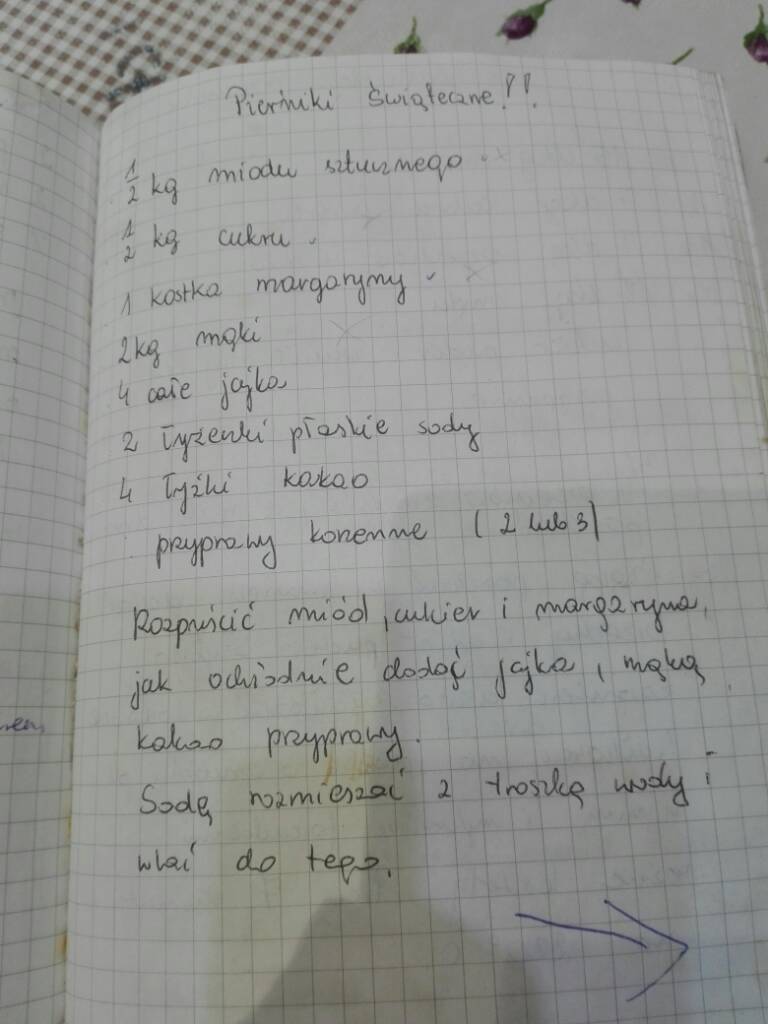 Pierniki Świąteczne!!
1/2 kg miodu sztucznego
1/2 kg cukru
1 kostka margaryny
2kg mąki
4 całe jajka
2 łyżeczki płaskie sody
4 łyżki kakao
przyprawy korzenne (2 lub 3)
Rozpuścić miód, cukier i margaryna,
jak ochłodnie dodać jajka, mąką
kakao przyprawy.
Sodę rozmieszać z troszką wody i
wlać do tego.